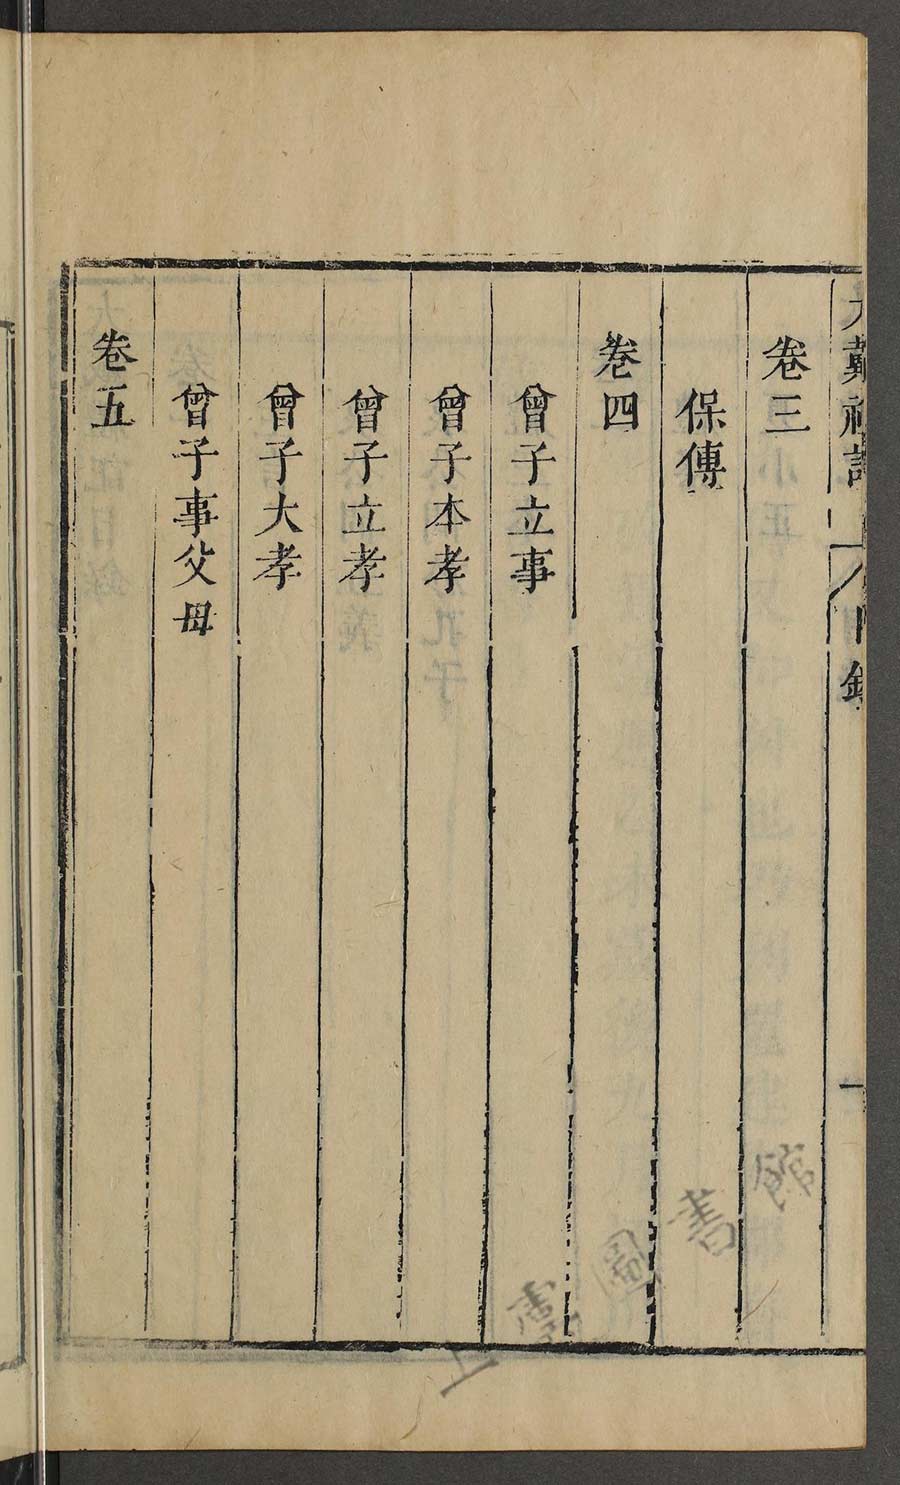 大戴禮記
目錄
一
卷三
保傅
卷四
曾子立事
曾子本孝
曾子立孝
曾子大孝
曾子事父母
卷五
上海圖書館